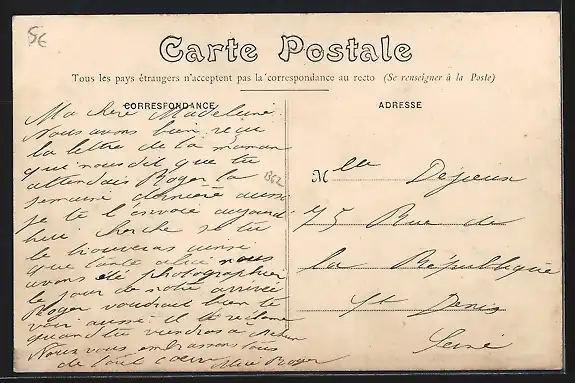 5€
Carte Postale
Tous les pays étrangers n'acceptent pas la correspondance au recto (Se renseigner à la Poste)
CORRESPONDANCE
Ma chère Madeleine
Nous avons bien reçu
la lettre de ta maman
qui nous dit que tu
attendais Roger la
semaine dernière aussi
je te l'envoie aujourd'
hui. Cherche si tu
le trouveras ainsi
que tante Alice nous
avons été photographier
le jour de notre arrivée
Roger voudrait bien te
voir aussi il te réclame
quand tu viendras à
Nous vous embrassons tous
de tout cœur Alice Roger
1362
ADRESSE
Mlle Dejeux
75 Rue de
la République
St Denis
Seine